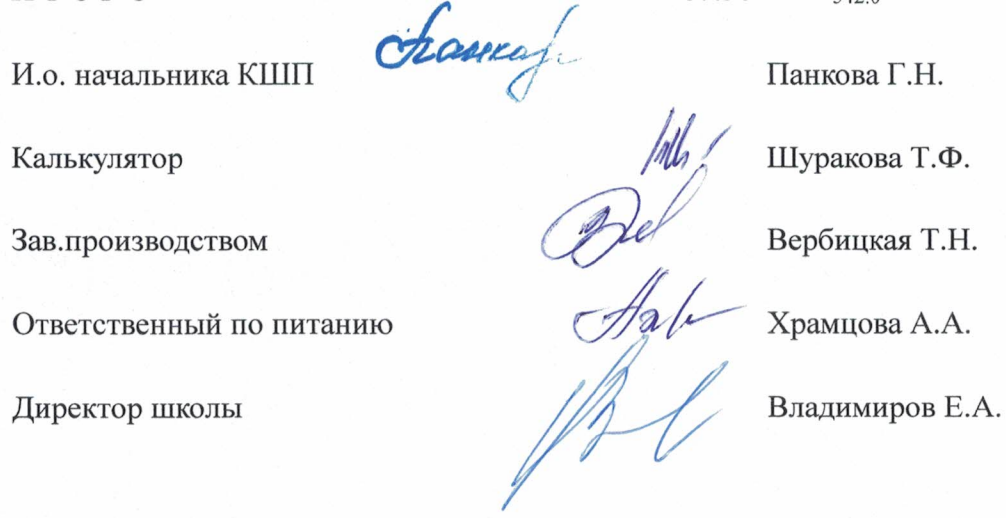 И.о. начальника КШП Панкова Г.Н.
Калькулятор Шуракова Т.Ф.
Зав.производством Вербицкая Т.Н.
Ответственный по питанию Храмцова А.А.
Директор школы Владимиров Е.А.